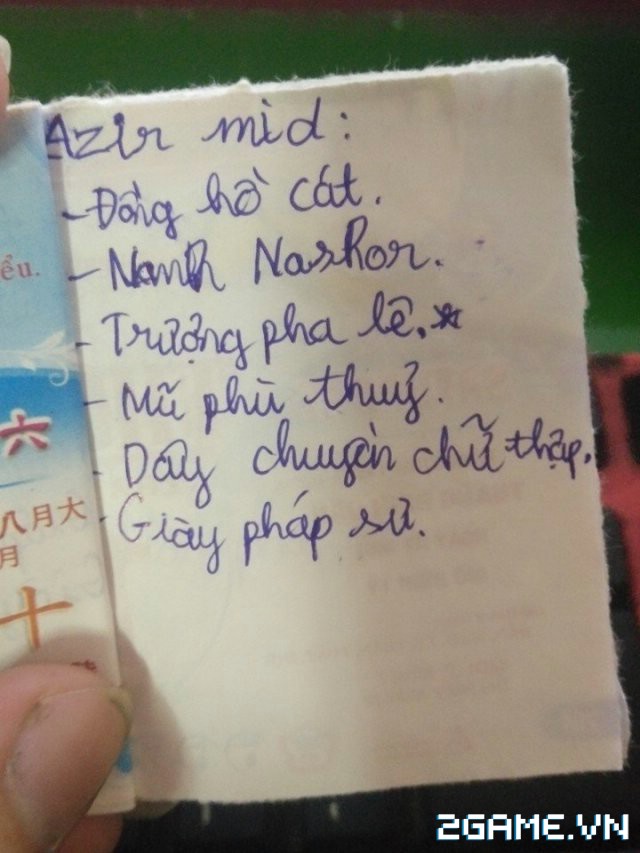 Azir mid:
- Đồng hồ cát.
- Nanh Nashor.
- Trượng pha lê.*
- Mũ phù thuỷ.
- Dây chuyền chữ thập.
- Giày pháp sư.
ểu.
六
八月大
月
十
2GAME.VN